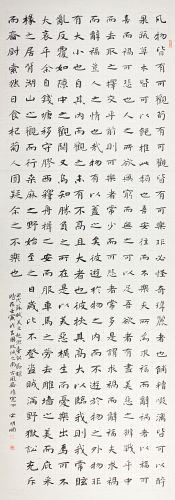 凡物皆有可觀苟有可觀皆有可樂非必怪奇瑋麗者也餔糟啜醨皆可以醉
果蔬草木皆可以飽推此類也吾安往而不樂夫所為求福而辭禍者以福可
喜而禍可悲也人之所欲無窮而物之可以足吾欲者有盡美惡之辨戰乎中
而去取之擇交乎前則可樂者常少而可悲者常多是謂求禍而辭福夫求禍
而辭福豈人之情也哉物有以蓋之矣彼遊於物之內而不遊於物之外物非
有大小也自其內而觀之未有不高且大者也彼挾其高大以臨我則我常眩
亂反覆如隙中之觀鬥又烏知勝負之所在是以美惡橫生而憂樂出焉可不
大哀乎余自錢塘移守膠西釋舟楫之安而服車馬之勞去雕牆之美而庇采
椽之居背湖山之觀而行桑麻之野始至之日歲比不登盜賊滿野獄訟充斥
而齋廚索然日食杞菊人固疑余之不樂也